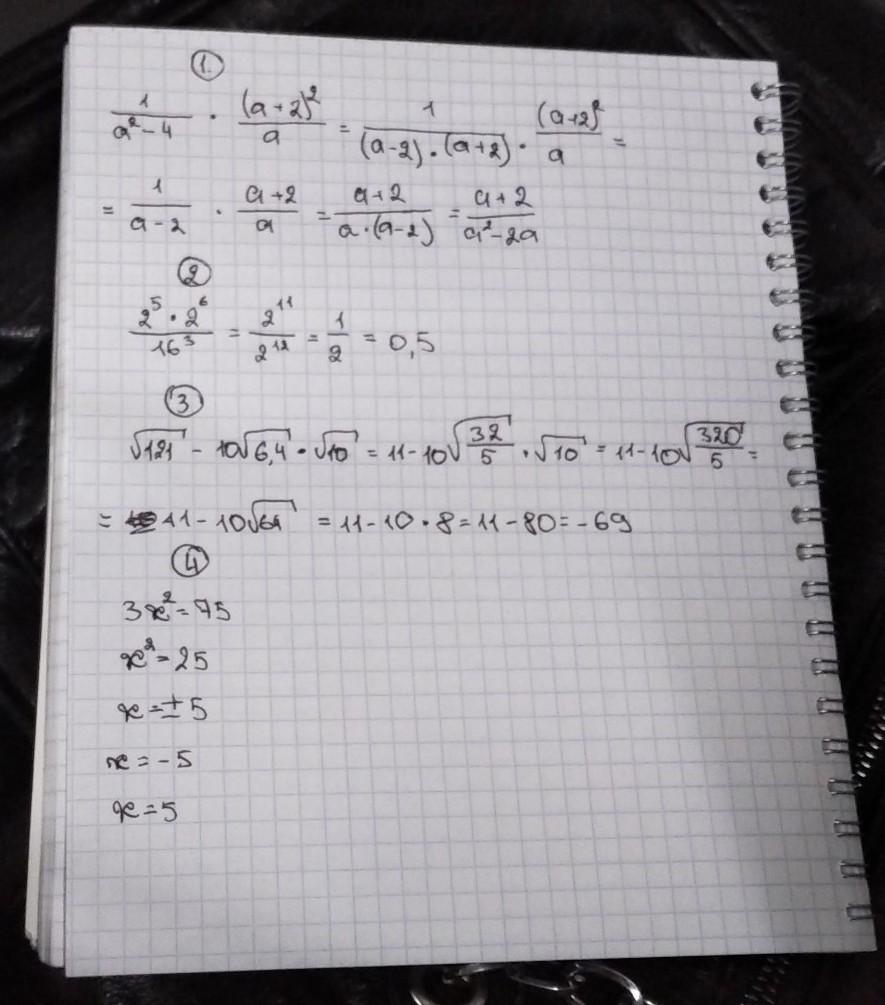 1.
1/(a²-4) · (a+2)²/a = 1/((a-2)·(a+2)) · (a+2)²/a =
= 1/(a-2) · (a+2)/a = (a+2)/(a·(a-2)) = (a+2)/(a²-2a)
2
(2⁵·2⁶)/16³ = 2¹¹/2¹² = 1/2 = 0,5
3
√121 - 10√6,4 · √10 = 11-10√(32/5) · √10 = 11-10√(320/5) =
= 11-10√64 = 11-10·8=11-80=-69
4
3x²=75
x²=25
x=±5
x=-5
x=5